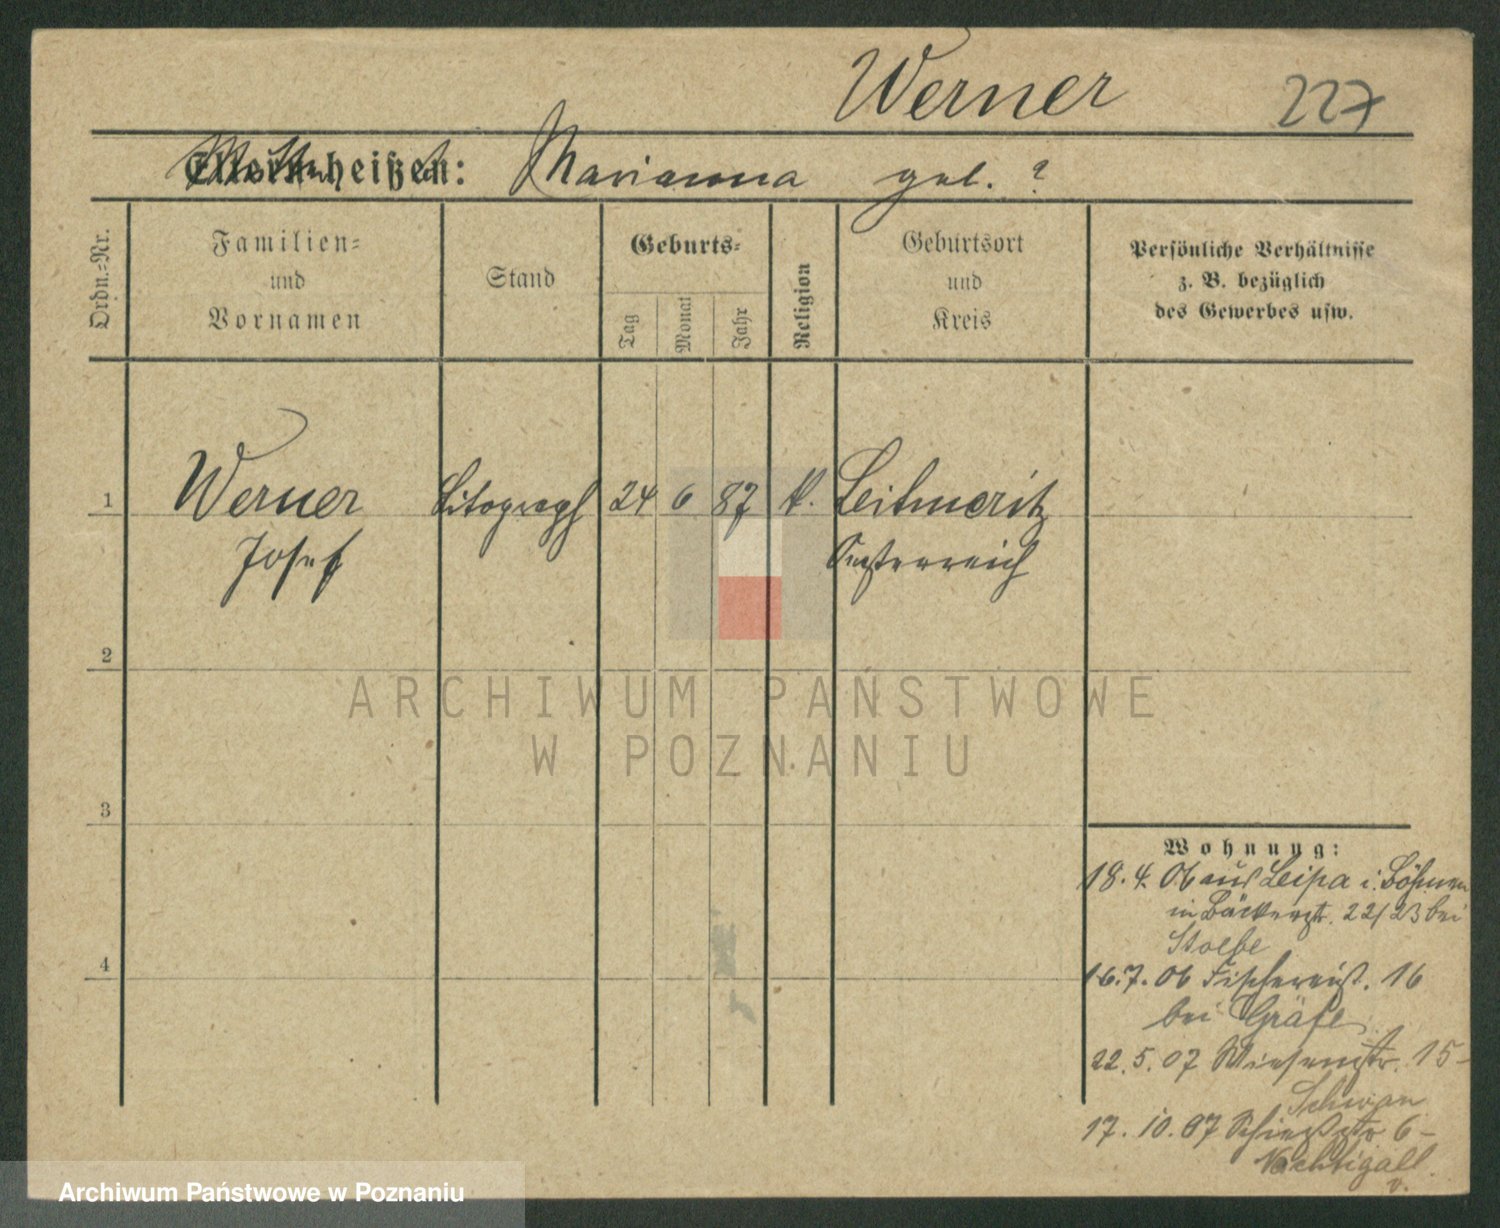 Werner 227
Eltern heißen: Marianna geb. ?
Ordn.=Nr.
Familien=
und
Vornamen
Stand
Geburts=
Tag
Monat
Jahr
Religion
Geburtsort
und
Kreis
Persönliche Verhältnisse
z. B. bezüglich
des Gewerbes usw.
1 Werner Litograph 24 6 87 k. Leitmeritz
Josef Oesterreich
2
ARCHIWUM PAŃSTWOWE
W POZNANIU
3
Wohnung:
18. 4. 06 aus Leipa i. Böhmen
in Bäckerstr. 22/23 bei
Stoebe
4
16. 7. 06 Fischereistr. 16
bei Gräfe
22. 5. 07 Wiesenstr. 15 -
Schwan
17. 10. 07 Schießstr 6 -
Nachtigall
v.
Archiwum Państwowe w Poznaniu